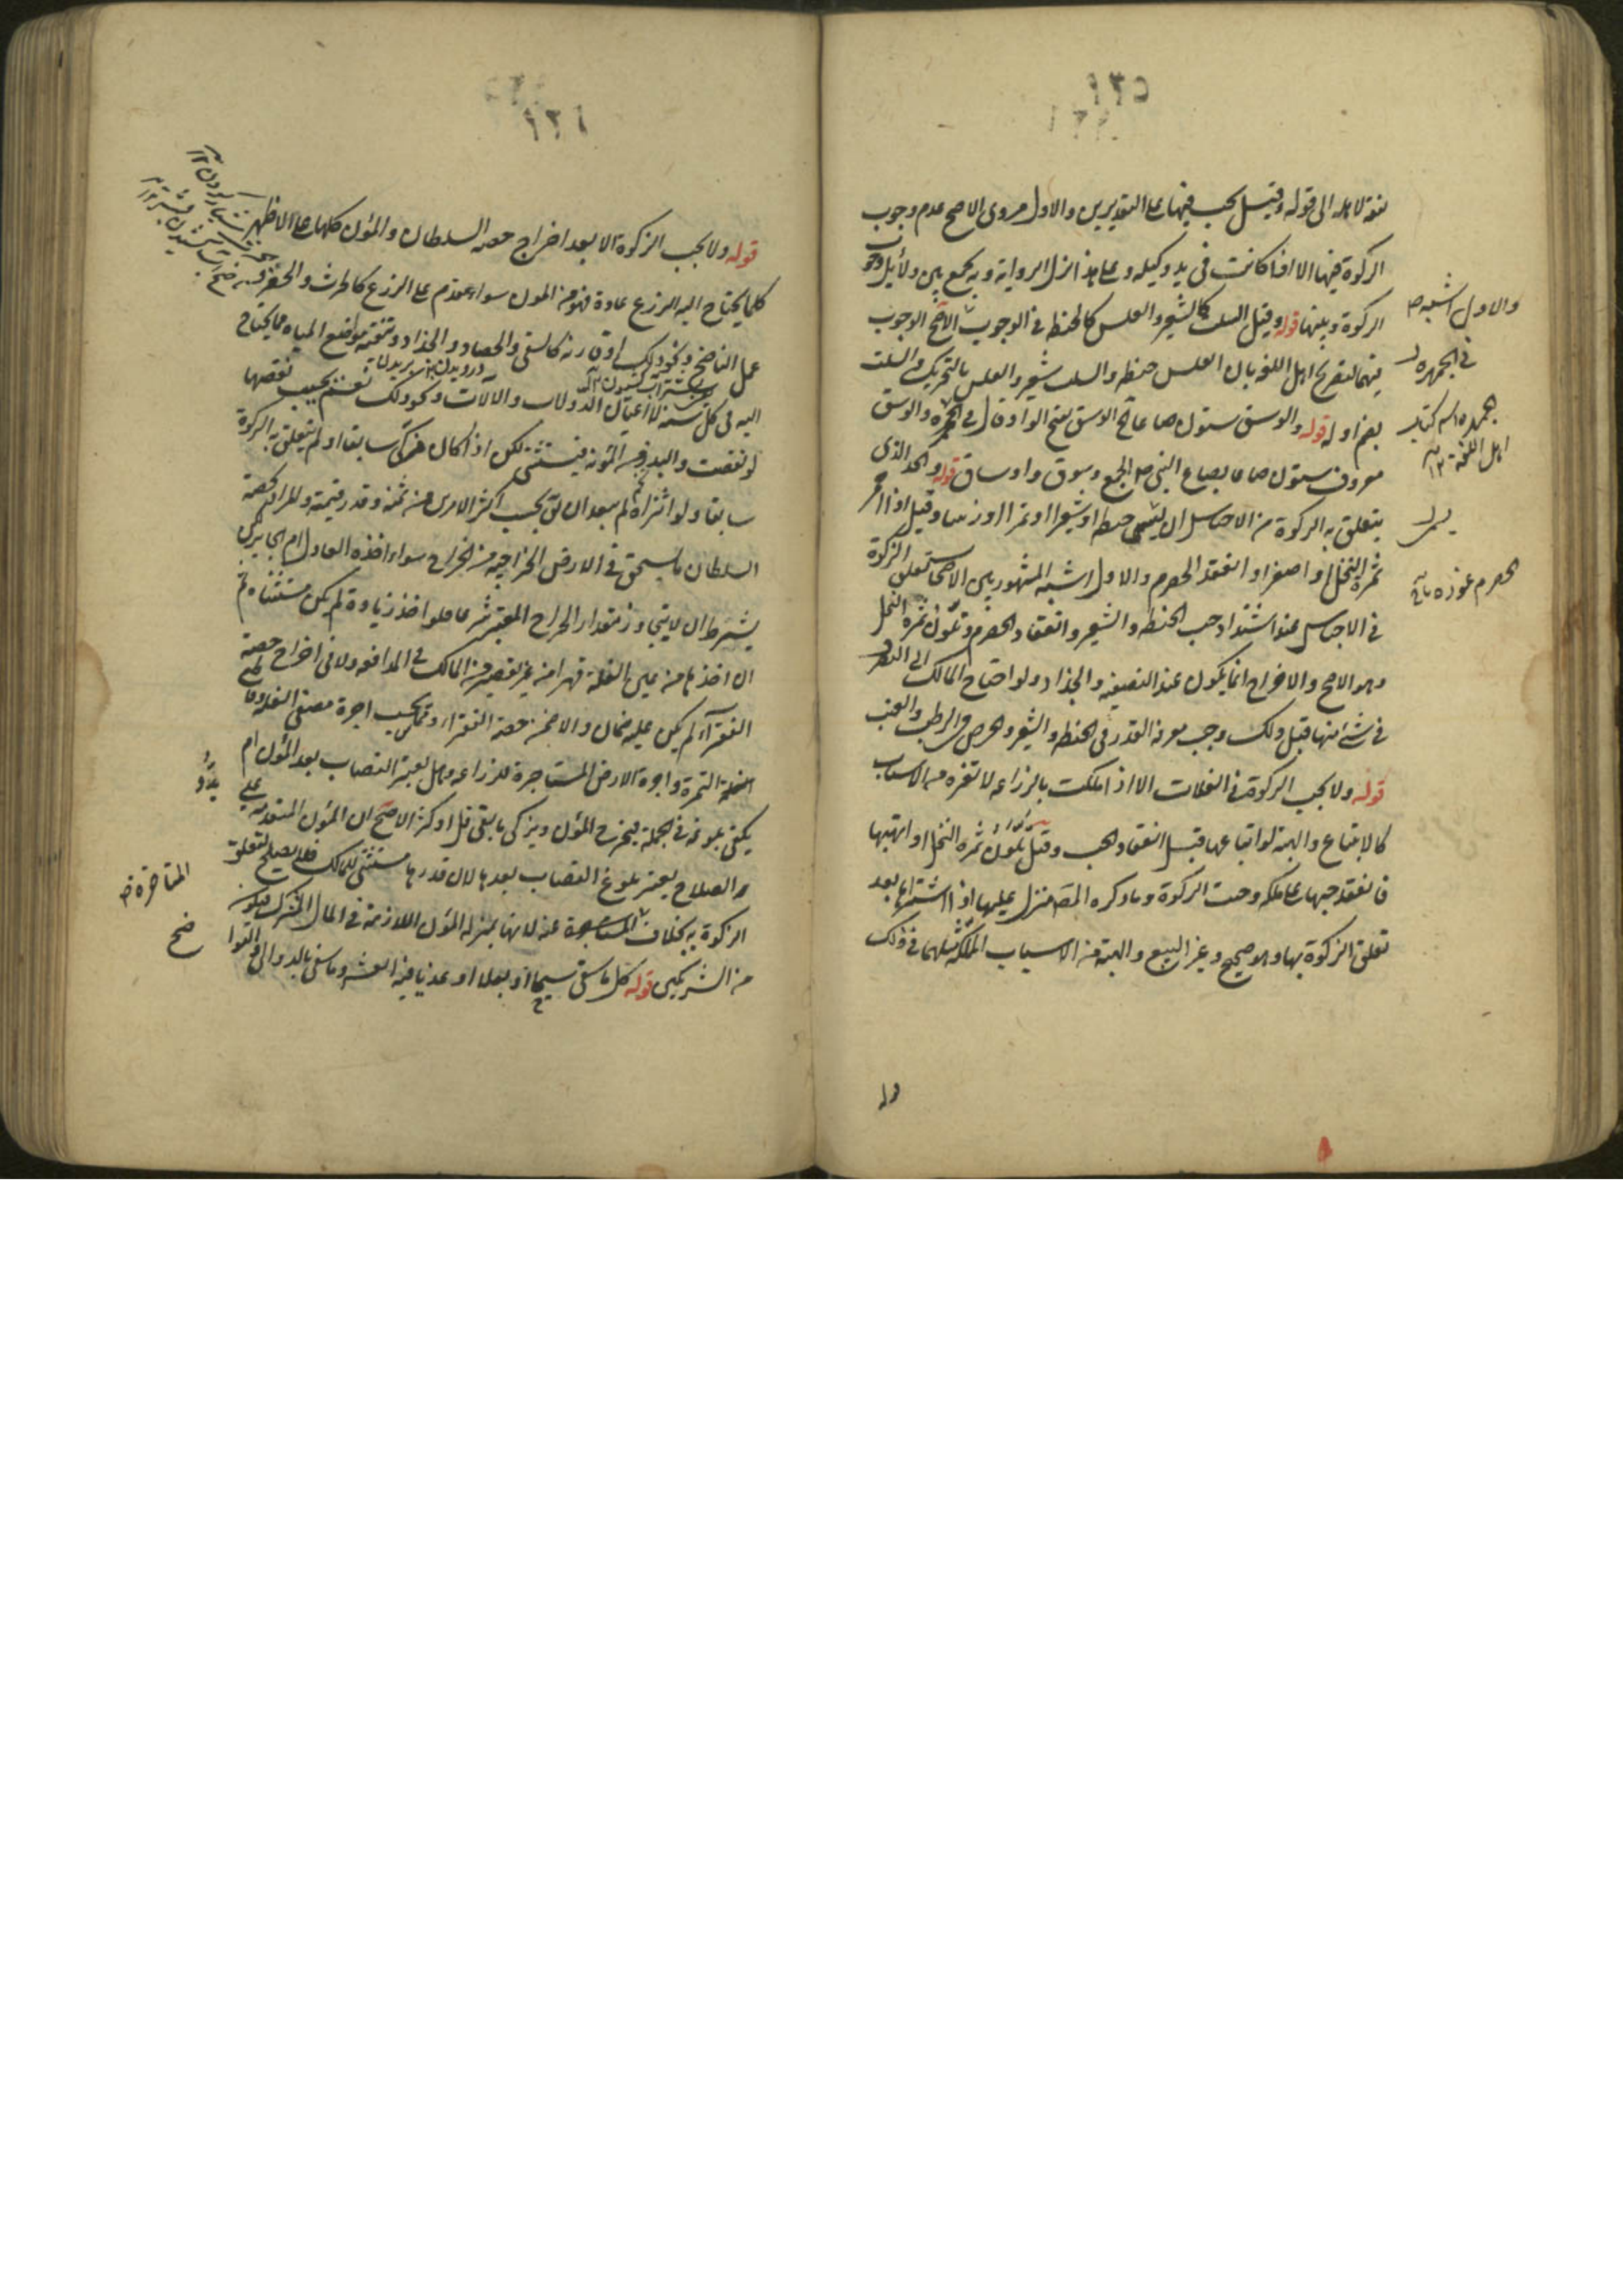 نفقة لاهله الى قوله وقيل يجب فيها على التقديرين والاول مروى الاصح عدم وجوب
الزكوة فيها الا اذا كانت فى يد وكيله وعلى هذا نزل الرواية وبه يجمع بين دلائل وجوب
الزكوة وبينها قوله وقيل السلت كالشعير والعلس كالحنطة فى الوجوب الاصح الوجوب
فيهما لتصريح اهل اللغة بان العلس حنطة والسلت شعير والعلس بالتحريك والسلت
بضم اوله قوله والوسق ستون صاعا الوسق بفتح الواو قال فى الجمهرة والوسق
معروف ستون صاعا بصاع النبى ص الجمع وسوق واوساق قوله والحد الذى
يتعلق به الزكوة من الاجناس ان يسمى حنطة او شعيرا او تمرا او زبيبا وقيل اذا احمر
ثمرة النخل او اصفر او انعقد الحصرم والاول اشبه المشهور بين الاصحاب تعلق الزكوة
فى الاجناس عند اشتداد حب الحنطة والشعير وانعقاد الحصرم وتلون ثمرة النخل
وهو الاصح والاخراج انما يكون عند التصفية والجذاذ ولو احتاج المالك الى التصرف
فى شئ منها قبل ذلك وجب معرفة القدر فى الحنطة والشعير والخرص فى الرطب والعنب
قوله ولا يجب الزكوة فى الغلات الا اذا ملكت بالزراعة لا بغيره من الاسباب
كالابتياع والهبة لو ابتاعها قبل انعقاد الحب وقبل تلون ثمرة النخل او اتهبها
فانعقد حبها على ملكه وجبت الزكوة وما ذكره المص منزل عليها اذا اشتراها بعد
تعلق الزكوة بها وهو صحيح وغير البيع والهبة من الاسباب المملكة مثلهما فى ذلك
والاول اشبه ص
فى الجمهرة
الجمهرة اسم كتاب
اهل اللغة ١٢
الحصرم غوره
قوله ولا يجب الزكوة الا بعد اخراج حصة السلطان والمؤن كلها على الاظهر
كلما يحتاج اليه الزرع عادة فهو من المؤن سواء تقدم على الزرع كالحرث والحفر
عمل الناضح ونحو ذلك او قارنه كالسقى والحصاد والجذاذ وتنقية مواضع المياه مما يحتاج
اليه فى كل سنة لا اعيان الدولاب والآلات ونحو ذلك نعم يحسب نقصها
لو نقصت والبذر من المؤنة فيستثنى لكن اذا كان مزكى سابقا او لم يتعلق به الزكوة
سابقا ولو اشتراه لم يبعد ان يق يحسب اكثر الامرين من ثمنه وقدر قيمته والمراد بحصة
السلطان ما يستحق فى الارض الخراجية من الخراج سواء اخذه العادل ام الجاير لكن
يشترط ان لا يتجاوز مقدار الخراج المعتبر شرعا فلو اخذ زيادة لم يكن مستثناة ثم
ان اخذها من عين الغلة قهرا من غير تقصير من المالك فى المدافعة ولا فى اخراج حصة
الفقراء لم يكن عليه ضمان والا ضمن حصة الفقراء ومما يحسب اجرة مصفى الغلة وقاطع
الثمرة واجرة الارض المستاجرة للزراعة وهل يعتبر النصاب بعد المؤن ام
يكفى بلوغه فى الجملة فيخرج المؤن ويزكى ما بقى قل او كثر الاصح ان المؤن المتقدمة على
بدو الصلاح يعتبر بلوغ النصاب بعدها لان قدرها مستثنى للمالك فلا يصلح لتعلق
الزكوة به بخلاف المتاخرة عنه لانها بمنزلة المؤن اللازمة فى المال المشترك فيكون
من الشريكين قوله كل ما سقى سيحا او بعلا او عذيا ففيه العشر وما سقى بالدوالى والنواضح
بدو
المتاخرة خ
ضح